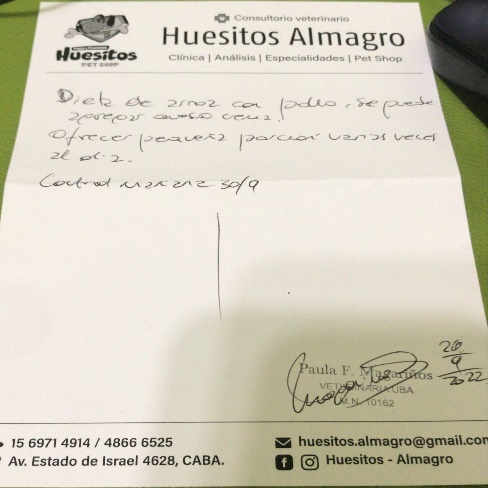 Consultorio veterinario
Huesitos Almagro
Clínica | Análisis | Especialidades | Pet Shop
Huesitos
PET SHOP
Dieta de arroz con pollo, se puede
agregar queso
Ofrecer pequeña porcion varias veces
al dia.
Control mañana 30/9
Paula F. Magariños
VETERINARIA UBA
M.N. 10162
9
2022
15 6971 4914 / 4866 6525
Av. Estado de Israel 4628, CABA.
huesitos.almagro@gmail.com
Huesitos - Almagro